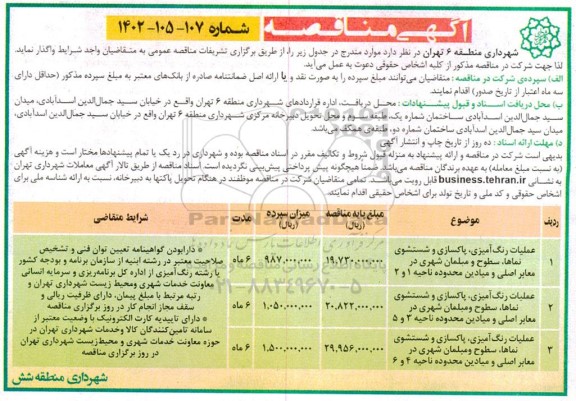 آگهی مناقصه
شماره ۱۰۷-۱۰۵-۱۴۰۲
شهرداری منطقه ۶ تهران در نظر دارد موارد مندرج در جدول زیر را، از طریق برگزاری تشریفات مناقصه عمومی به متقاضیان واجد شرایط واگذار نماید.
لذا جهت شرکت در مناقصه مذکور از کلیه اشخاص حقوقی دعوت به عمل می‌آید.
الف) سپرده‌ی شرکت در مناقصه: متقاضیان می‌توانند مبلغ سپرده را به صورت نقد و یا ارائه اصل ضمانتنامه صادره از بانک‌های معتبر به مبلغ سپرده مذکور (حداقل دارای
سه ماه اعتبار از تاریخ صدور) اقدام نمایند.
ب) محل دریافت اسناد و قبول پیشنهادات: محل دریافت، اداره قراردادهای شهرداری منطقه ۶ تهران واقع در خیابان سید جمال‌الدین اسدآبادی، میدان
سید جمال‌الدین اسدآبادی ساختمان شماره یک، سوم و محل تحویل دبیرخانه مرکزی شهرداری منطقه ۶ تهران واقع در خیابان سید جمال‌الدین اسدآبادی،
میدان سید جمال‌الدین اسدآبادی ساختمان شماره دو، طبقه‌ی همکف می‌باشد.
د) مهلت ارائه اسناد: ده روز از تاریخ چاپ و انتشار آگهی
بدیهی است شرکت در مناقصه و ارائه پیشنهاد به منزله قبول شروط و تکالیف مقرر در اسناد مناقصه بوده و شهرداری در رد یک یا تمام پیشنهادها مختار است و هزینه آگهی
(به نسبت مبلغ معامله) به عهده برندگان مناقصه می‌باشد. ضمنا هیچگونه پیش پرداختی پیش‌بینی نگردیده است. اسناد مناقصه از طریق تالار آگهی معاملات شهرداری تهران
به نشانی business.tehran.ir قابل رویت می‌باشد. تمامی متقاضیان شرکت در مناقصه موظفند در هنگام تحویل پاکتها به دبیرخانه، نسبت به ارائه شناسه ملی برای
اشخاص حقوقی و کد ملی و تاریخ تولد برای اشخاص حقیقی اقدام نمایند.
ردیف موضوع مبلغ پایه مناقصه (ریال) میزان سپرده (ریال) مدت شرایط متقاضی
۱ عملیات رنگ‌آمیزی، پاکسازی و شستشوی نماها، سطوح و مبلمان شهری در معابر اصلی و میادین محدوده ناحیه ۱ و ۲ ۱۹,۷۳۰,۰۰۰,۰۰۰ ۹۸۷,۰۰۰,۰۰۰ ۶ ماه
۲ عملیات رنگ‌آمیزی، پاکسازی و شستشوی نماها، سطوح و مبلمان شهری در معابر اصلی و میادین محدوده ناحیه ۳ و ۵ ۲۰,۸۲۲,۰۰۰,۰۰۰ ۱,۰۵۰,۰۰۰,۰۰۰ ۶ ماه
۳ عملیات رنگ‌آمیزی، پاکسازی و شستشوی نماها، سطوح و مبلمان شهری در معابر اصلی و میادین محدوده ناحیه ۴ و ۶ ۲۹,۹۵۶,۰۰۰,۰۰۰ ۱,۵۰۰,۰۰۰,۰۰۰ ۶ ماه
* دارابودن گواهینامه تعیین توان فنی و تشخیص
صلاحیت معتبر در رشته ابنیه از سازمان برنامه و بودجه کشور
یا رشته رنگ‌آمیزی از اداره کل برنامه‌ریزی و سرمایه انسانی
معاونت خدمات شهری ومحیط زیست شهرداری تهران و
رتبه مرتبط با مبلغ پیمان، دارای ظرفیت ریالی و
سقف مجاز انجام کار در روز برگزاری مناقصه
* دارای تاییدیه کارت الکترونیک با وضعیت معتبر از
سامانه تامین‌کنندگان کالا وخدمات شهرداری تهران در
حوزه معاونت خدمات شهری و محیط‌زیست شهرداری تهران
در روز برگزاری مناقصه
شهرداری منطقه شش
۰۲۱-۸۸۳۴۹۶۷۰-۵